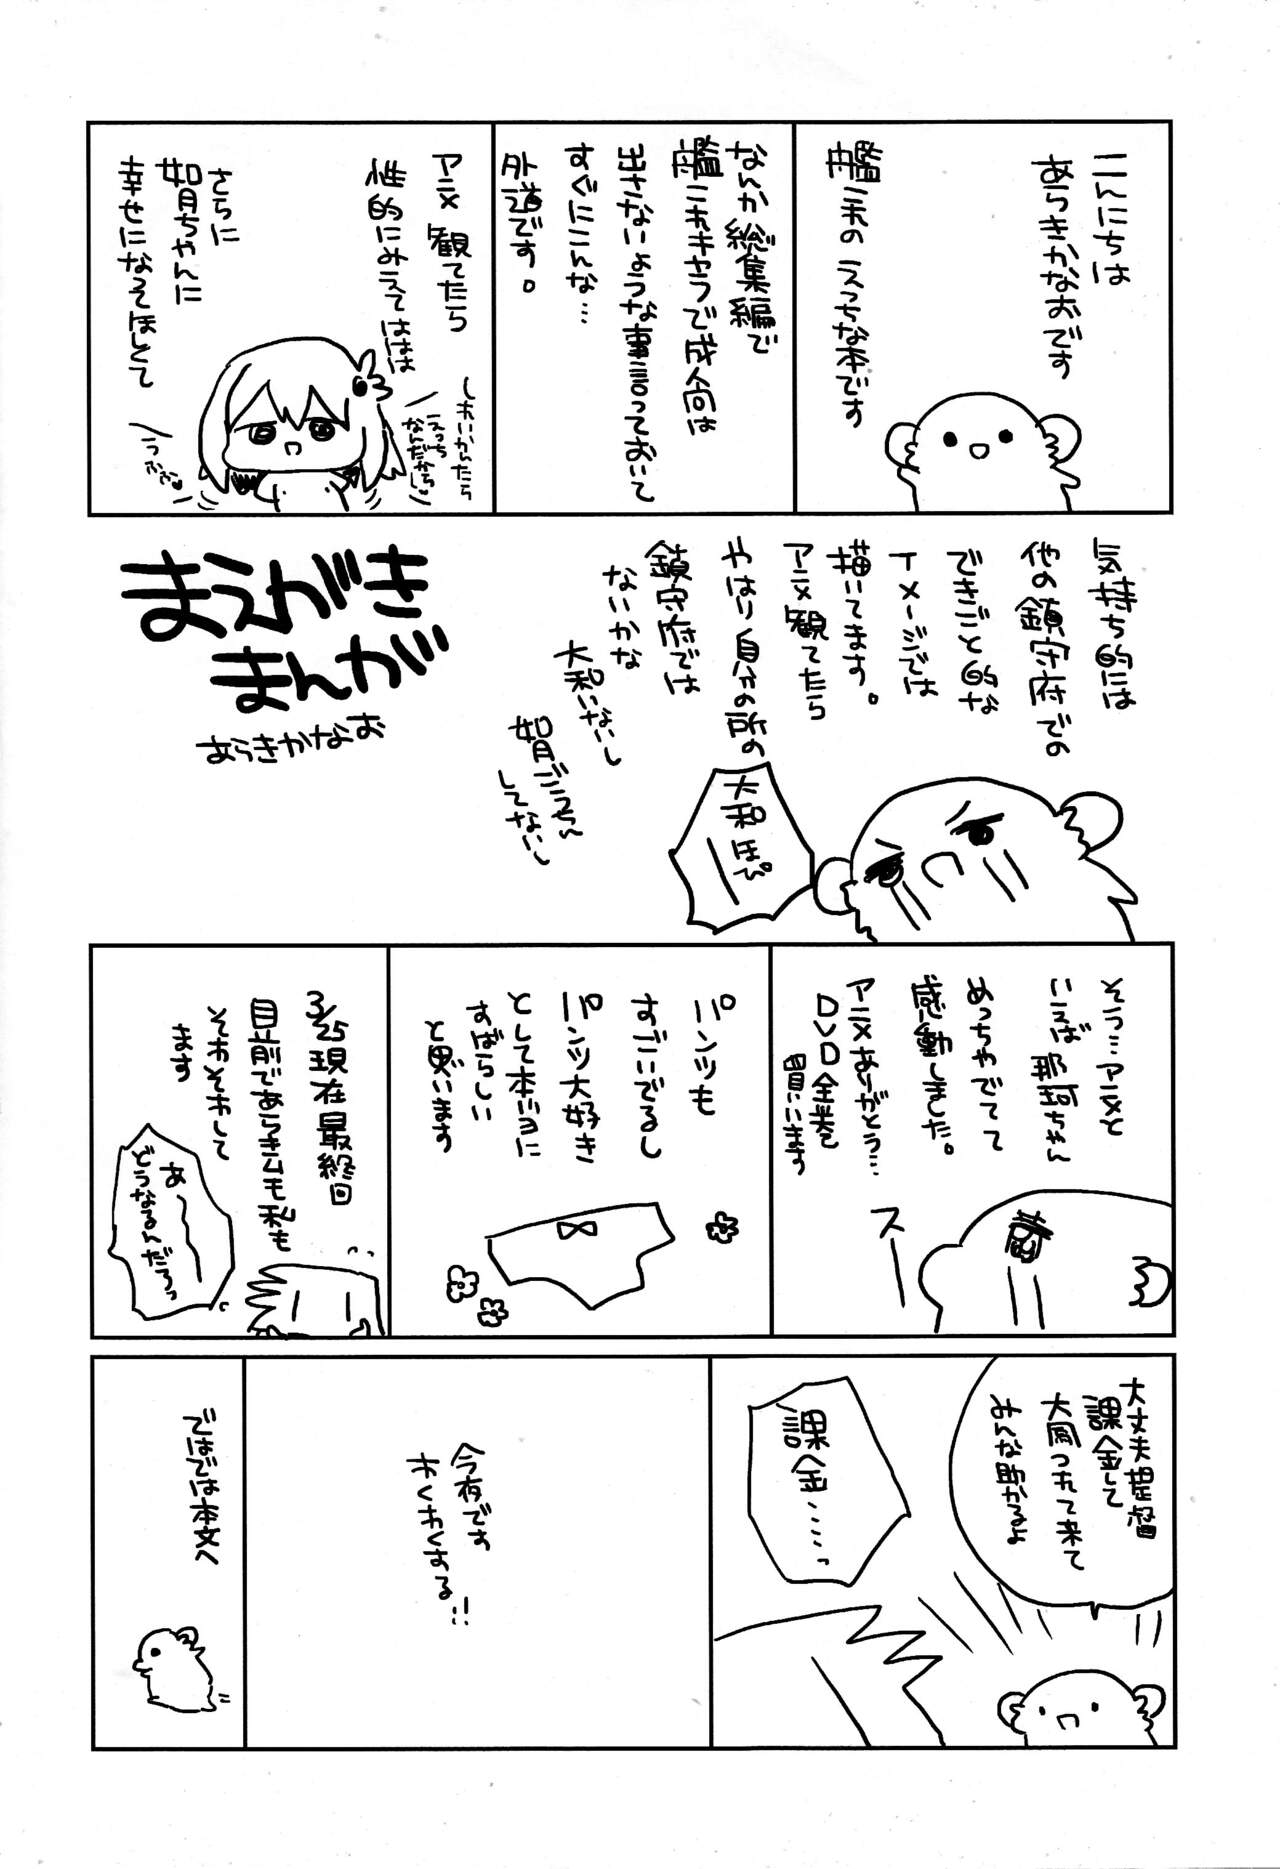 こんにちは
あらきかなおです
艦これの えっちな本です
なんか総集編で
艦これキャラで成人向は
出さないような事言っておいて
すぐにこんな…
外道です。
アニメ 観てたら
性的にみえてははは
さらに
如月ちゃんに
幸せになってほしくて
しれいかんたら
えっち
なんだから♡
うふふ♡
気持ち的には
他の鎮守府での
できごと的な
イメージでは
描いてます。
アニメ観てたら
やはり自分の所の
鎮守府では
ないかな
大和いないし
如月ごうちん
してないし
大和ほぴー
まえがき
まんが
あらきかなお
そう…アニメと
いえば 那珂ちゃん
めっちゃでてて
感動しました。
アニメありがとう…
DVD全巻
買います
スー
パンツも
すごいでるし
パンツ大好き
として本当に
すばらしい
と思います
3/25現在最終回
目前であらきムも私も
そわそわして
ます
あ〜〜
どうなるんだろっ
大丈夫提督
課金して
大鳳つれて来て
みんな助かるよ
課金……っ
今夜です
わくわくする!!
ではでは本文へ